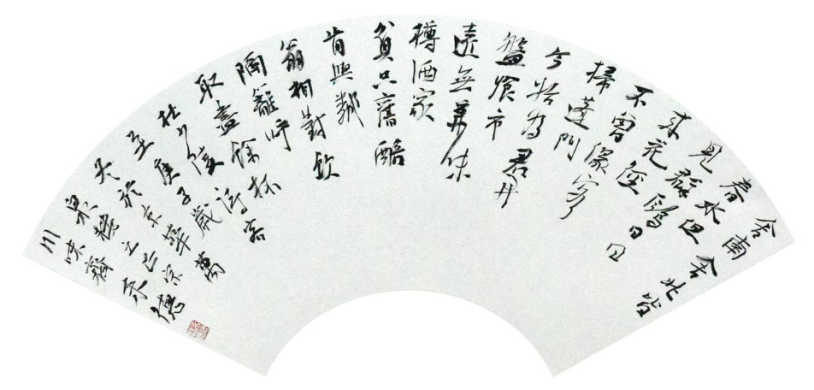 舍南舍北皆
春水但
見群鷗日日
來花徑
不曾緣客
掃蓬門
今始為君開
盤飧市
遠無兼味
樽酒家
貧只舊醅
肯與鄰
翁相對飲
隔籬呼
取盡餘杯
杜少陵
庚子歲萬
於京華
川味齋